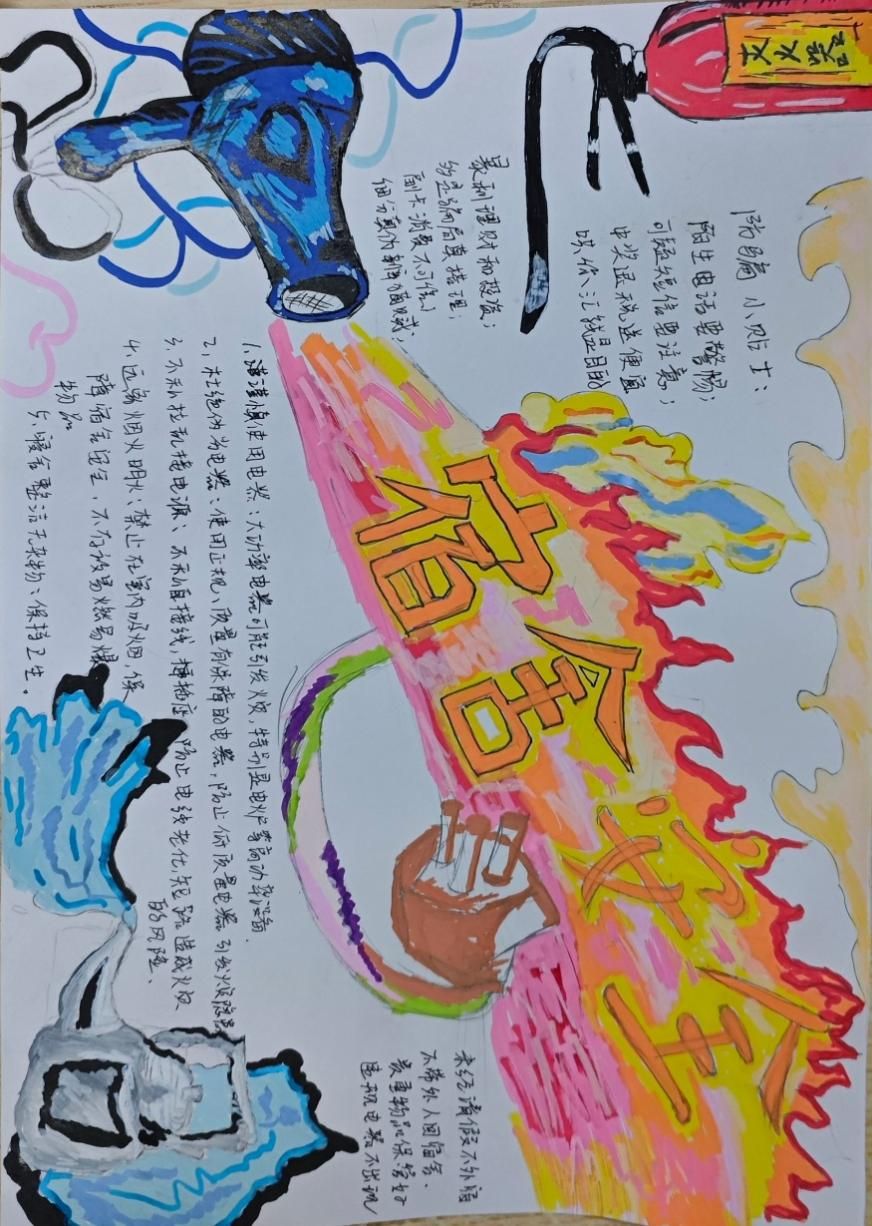 灭火器
防骗小贴士：
陌生电话要警惕；
可疑短信要注意；
中奖退税送便宜
哄你汇钱是目的
暴利理财和投资；
多是骗局莫搭理；
刷卡消费不可信
细分真伪制西贼；
宿舍安全
1、谨谨慎使用电器：大功率电器可能引发火灾，特别是电炉等高功率设备.
2、杜绝伪劣电器：使用正规、质量有保障的电器，防止低质量电器引发火灾隐患
3、不私拉乱接电源、不私自接线，插座 防止电线老化,短路造成火灾
的风险、
4、远离烟火明火：禁止在室内吸烟,保
障宿舍卫生，不存放易燃易爆
物品
5、寝舍整洁无杂物：保持卫生.
未经请假不外宿
不带外人回宿舍、
贵重物品保管好
违规电器不出现